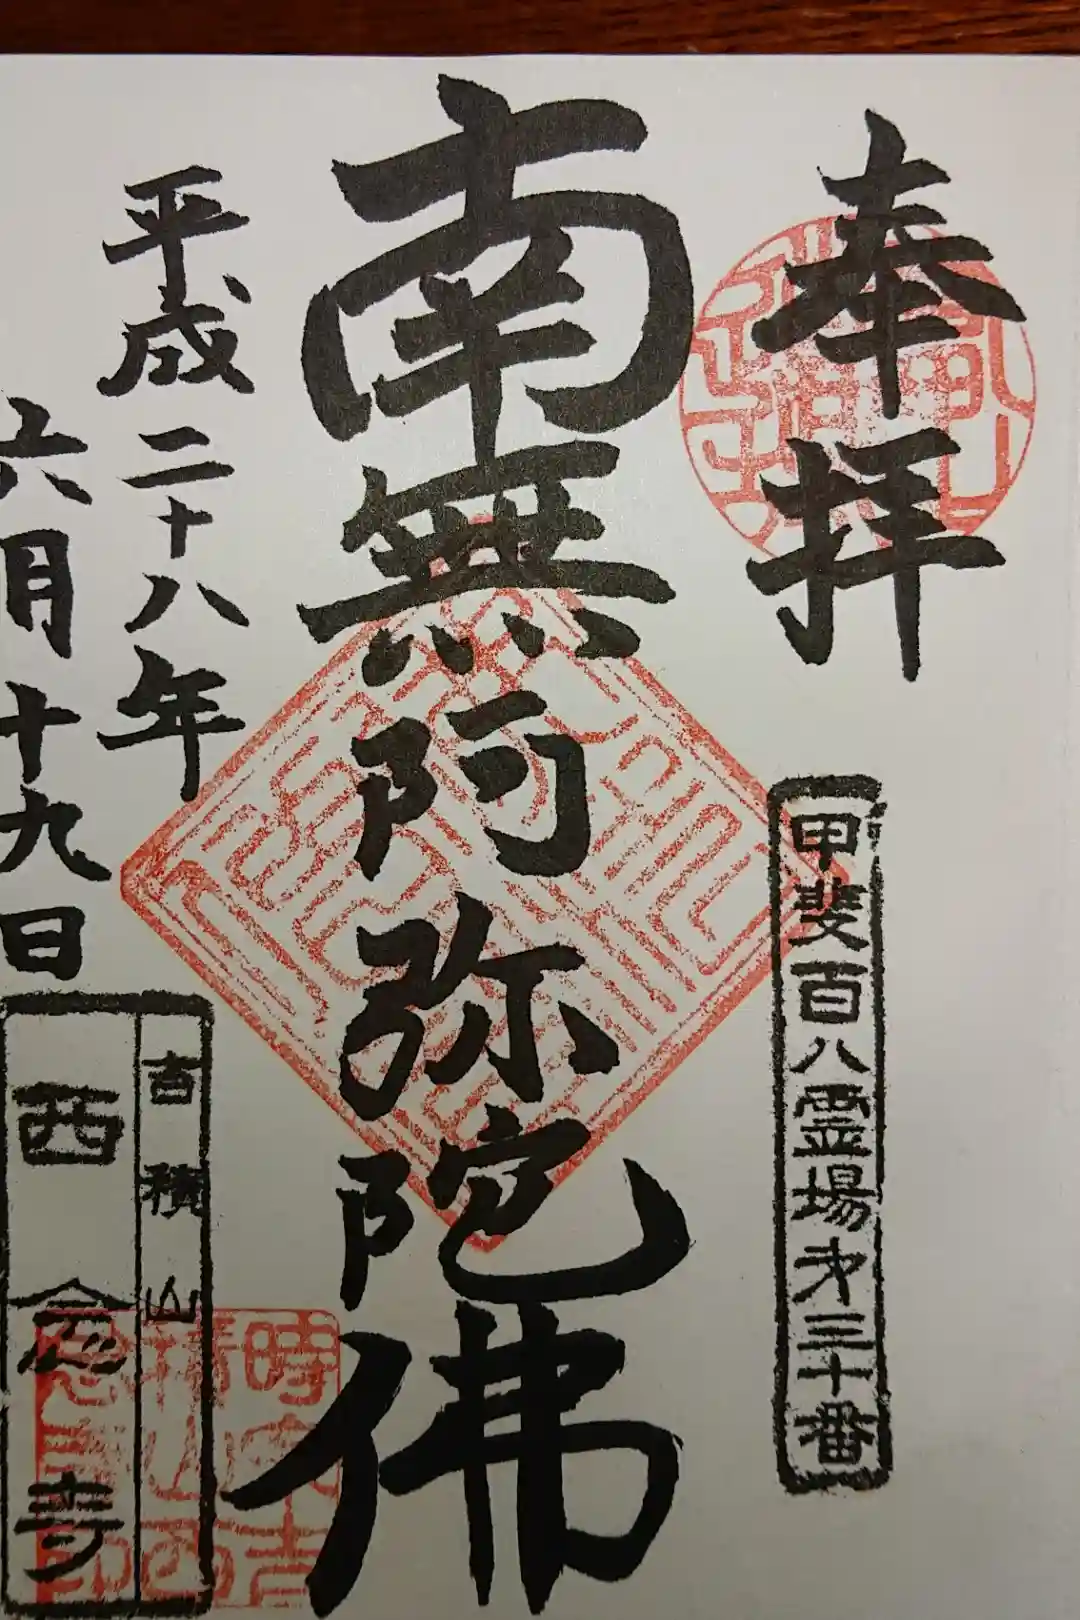 奉拝
甲斐百八霊場才三十番
南無阿弥陀佛
平成二十八年
六月十九日
吉積山
西念寺